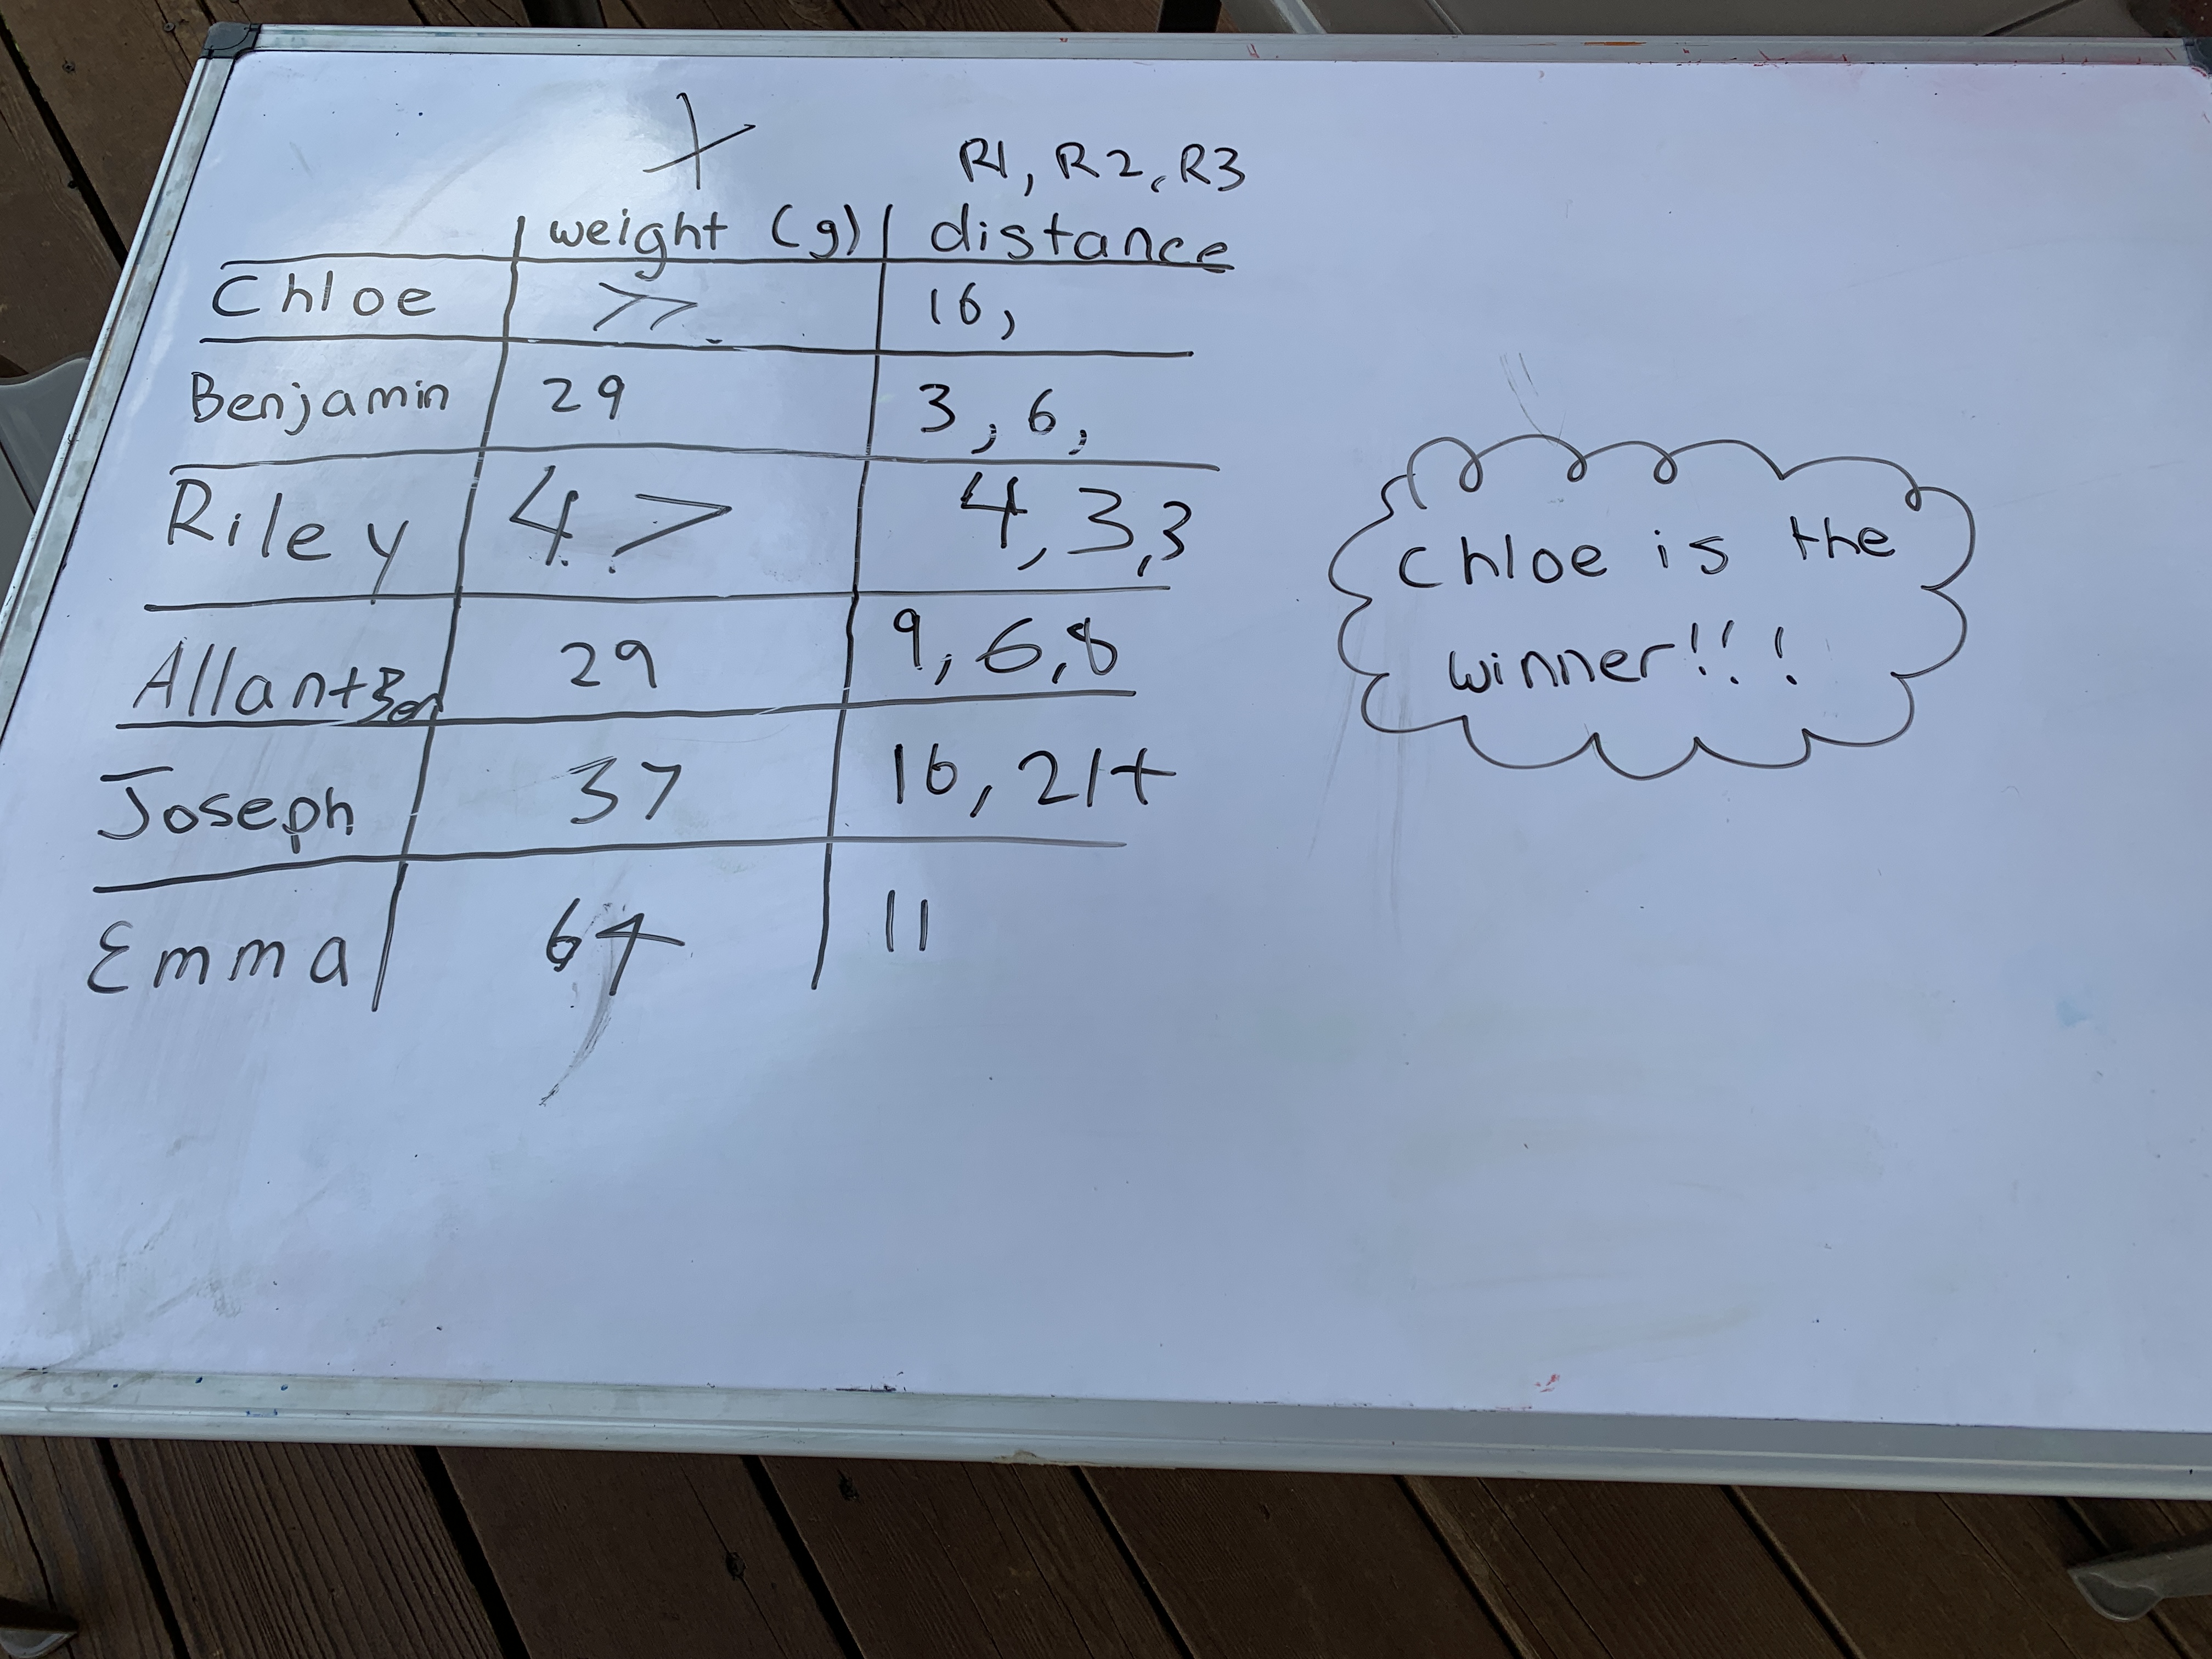 R1, R2, R3
weight (g) distance
Chloe 77 16,
Benjamin 29 3, 6,
Riley 47 4, 3, 3
Allan+Ben 29 9, 6, 8
Joseph 37 16, 21+
Emma 64 11
Chloe is the
winner!!!